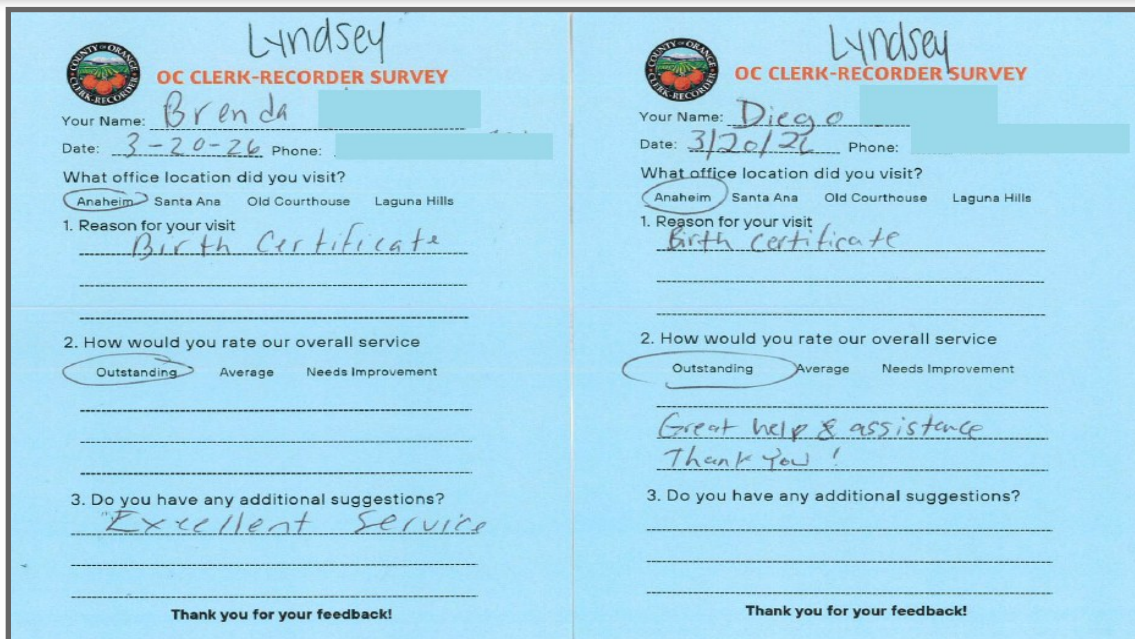 Lyndsey
COUNTY OF ORANGE
CLERK-RECORDER
OC CLERK-RECORDER SURVEY
Your Name: Brenda
Date: 3-20-26 Phone:
What office location did you visit?
Anaheim Santa Ana Old Courthouse Laguna Hills
1. Reason for your visit
Birth Certificate
2. How would you rate our overall service
Outstanding Average Needs Improvement
3. Do you have any additional suggestions?
Excellent Service
Thank you for your feedback!
Lyndsey
COUNTY OF ORANGE
CLERK-RECORDER
OC CLERK-RECORDER SURVEY
Your Name: Diego
Date: 3/20/26 Phone:
What office location did you visit?
Anaheim Santa Ana Old Courthouse Laguna Hills
1. Reason for your visit
Birth Certificate
2. How would you rate our overall service
Outstanding Average Needs Improvement
Great help & assistance
Thank you !
3. Do you have any additional suggestions?
Thank you for your feedback!